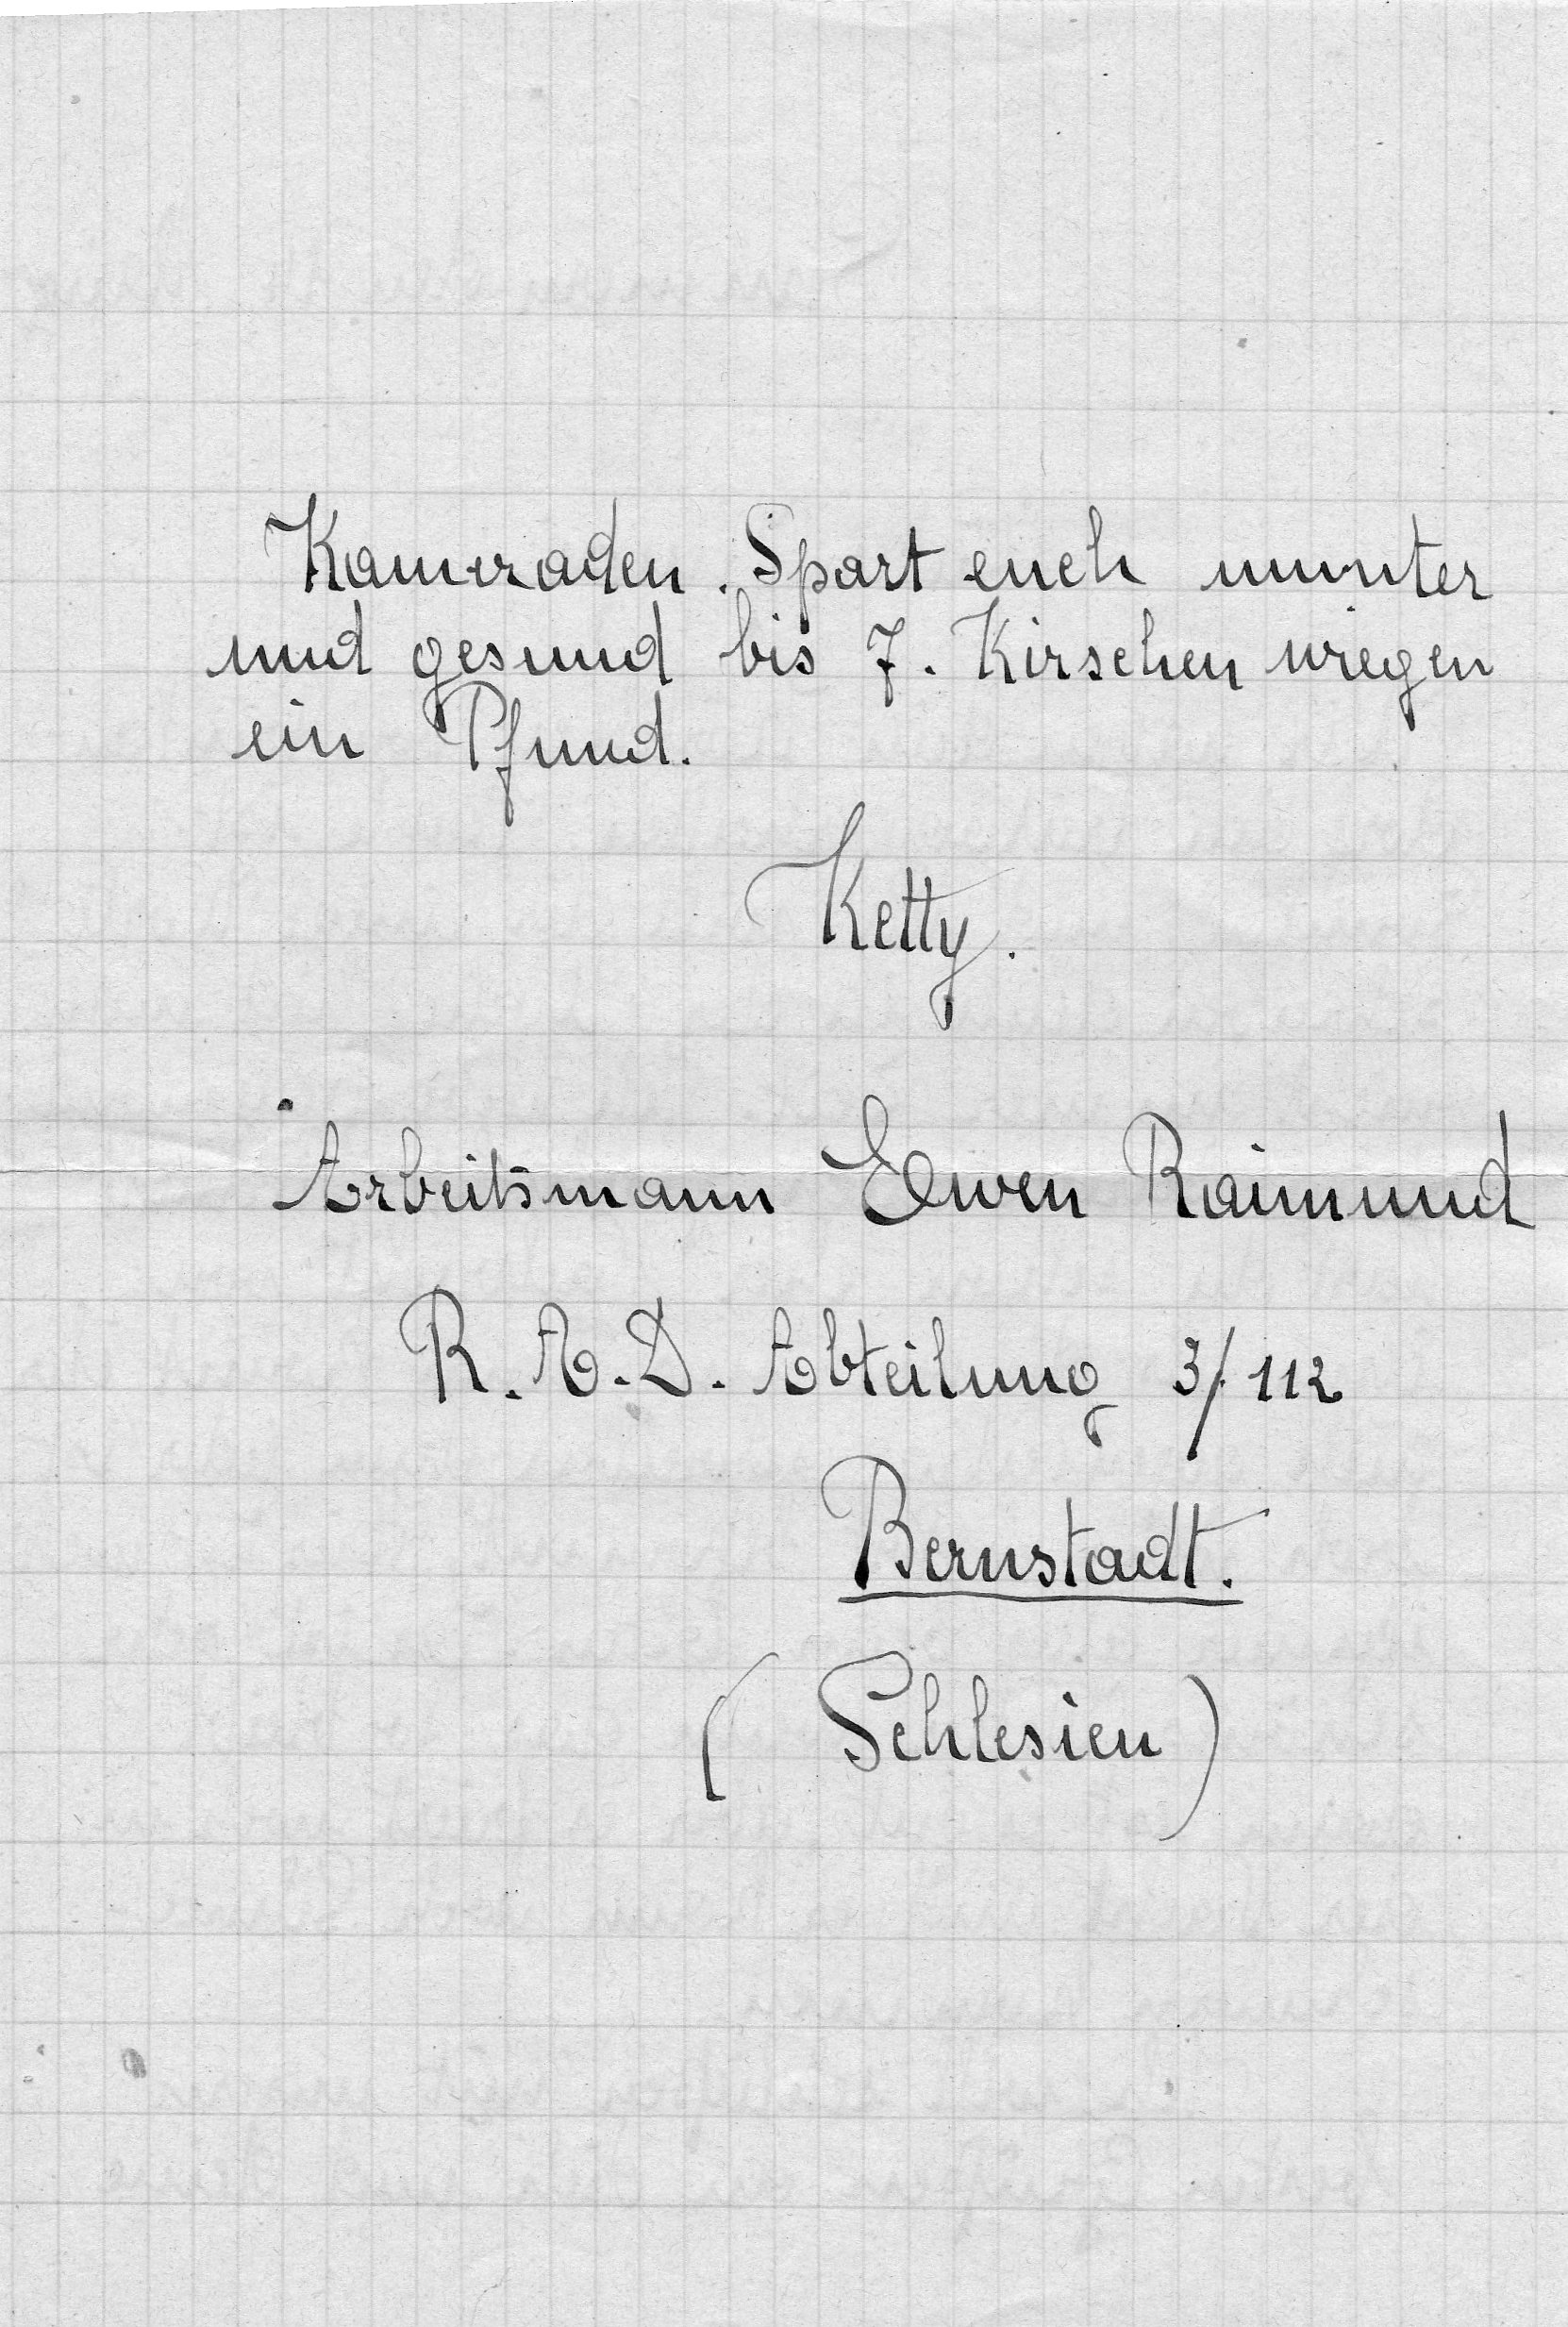 Kameraden. Spart euch munter
und gesund bis 7. Kirschen wiegen
ein Pfund.
Ketty.
Arbeitsmann Ewen Raimund
R. A. D. Abteilung 3/112
Bernstadt.
( Schlesien )